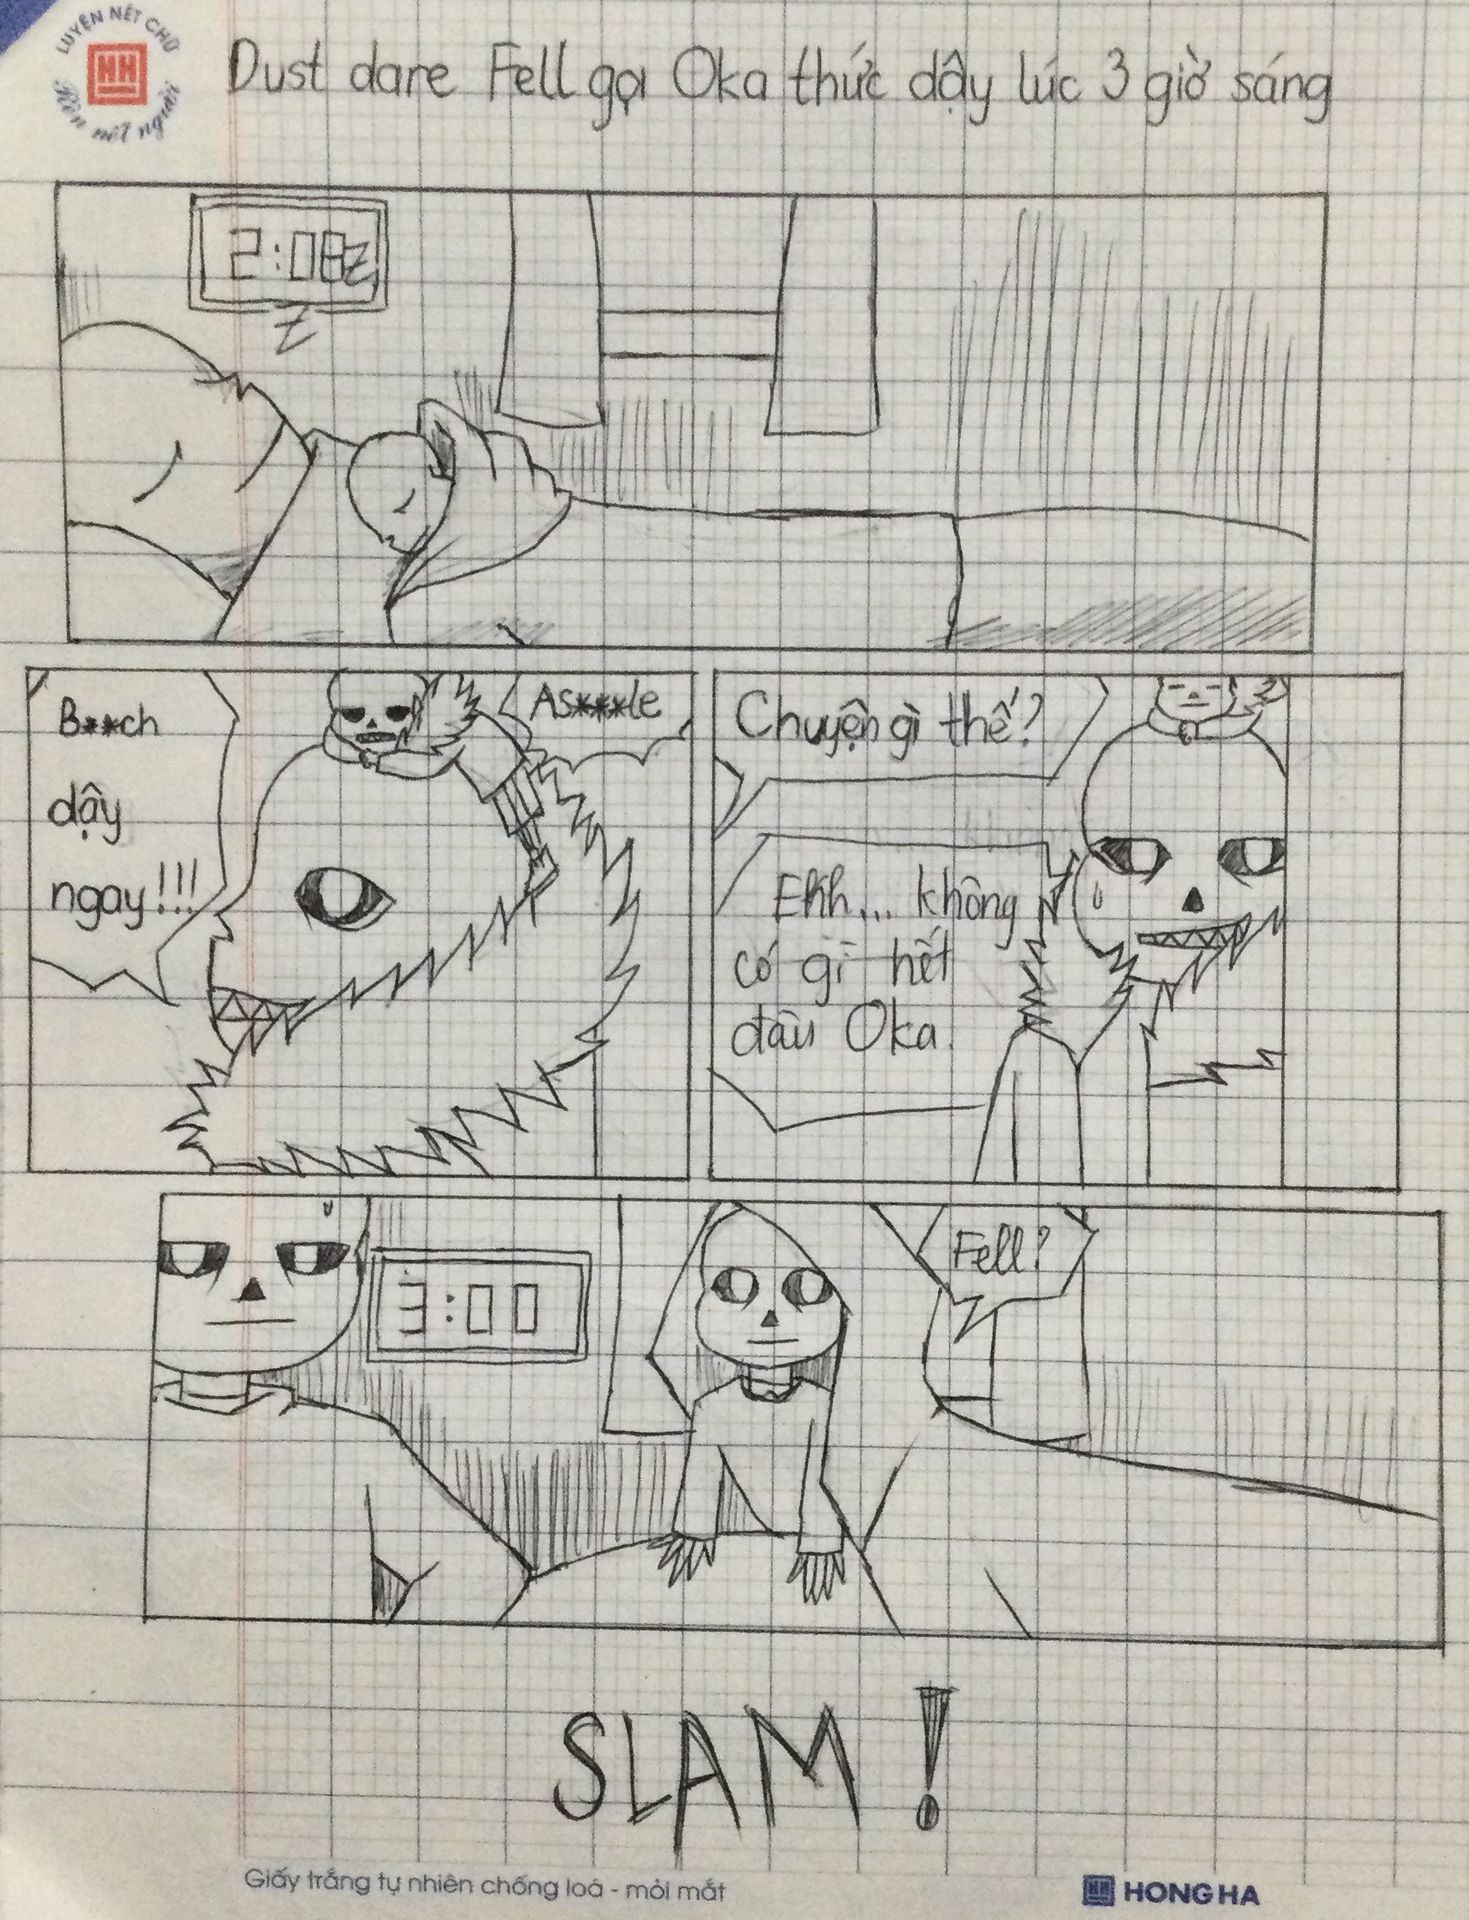 LUYỆN NÉT CHỮ
Rèn nết người
Dust dare Fell gọi Oka thức dậy lúc 3 giờ sáng
2:08
Z
Z
B**ch
dậy
ngay!!!
As***le
Chuyện gì thế?
Z
Ehh... không
có gì hết
đâu Oka.
3:00
Fell?
SLAM!
Giấy trắng tự nhiên chống loá - mỏi mắt
HH HONG HA